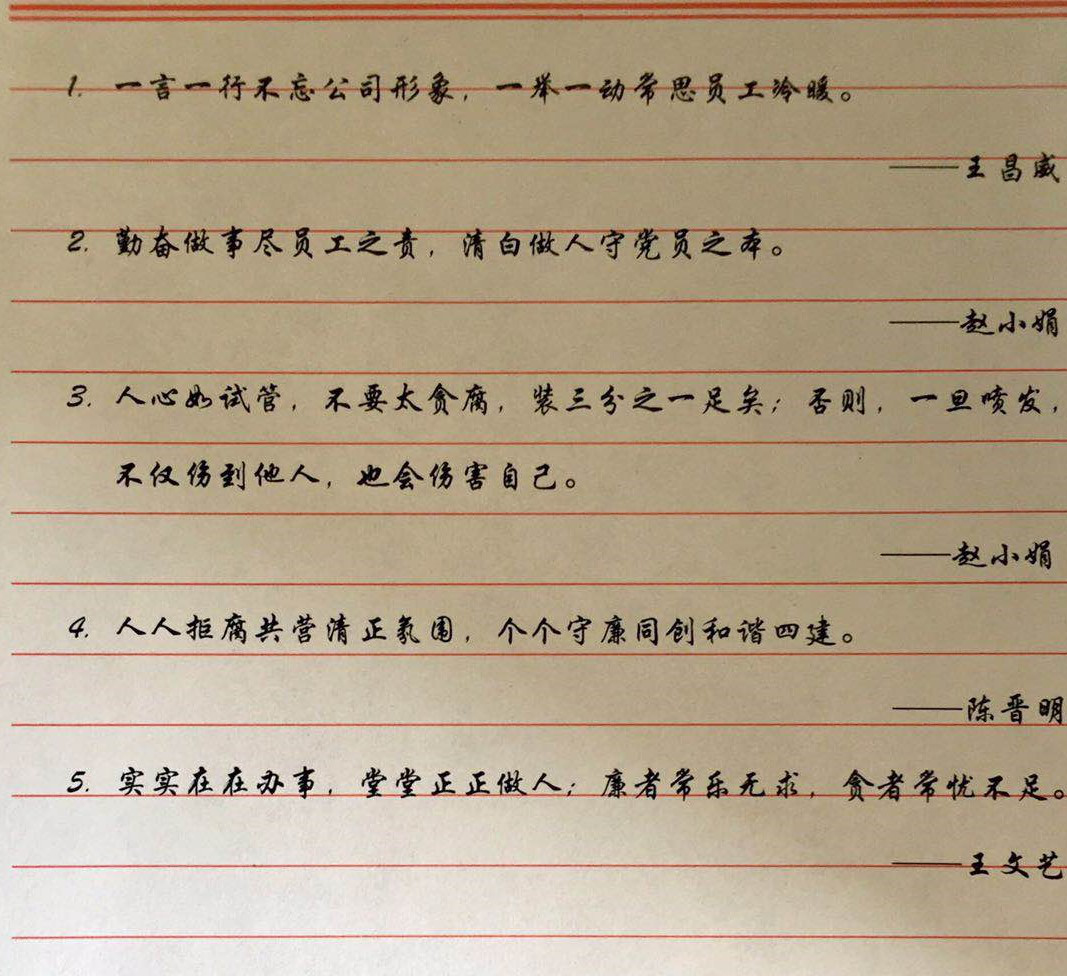 1. 一言一行不忘公司形象，一举一动常思员工冷暖。
——王昌威
2. 勤奋做事尽员工之责，清白做人守党员之本。
——赵小娟
3. 人心如试管，不要太贪腐，装三分之一足矣；否则，一旦喷发，
不仅伤到他人，也会伤害自己。
——赵小娟
4. 人人拒腐共营清正氛围，个个守廉同创和谐四建。
——陈晋明
5. 实实在在办事，堂堂正正做人；廉者常乐无求，贪者常忧不足。
——王文艺